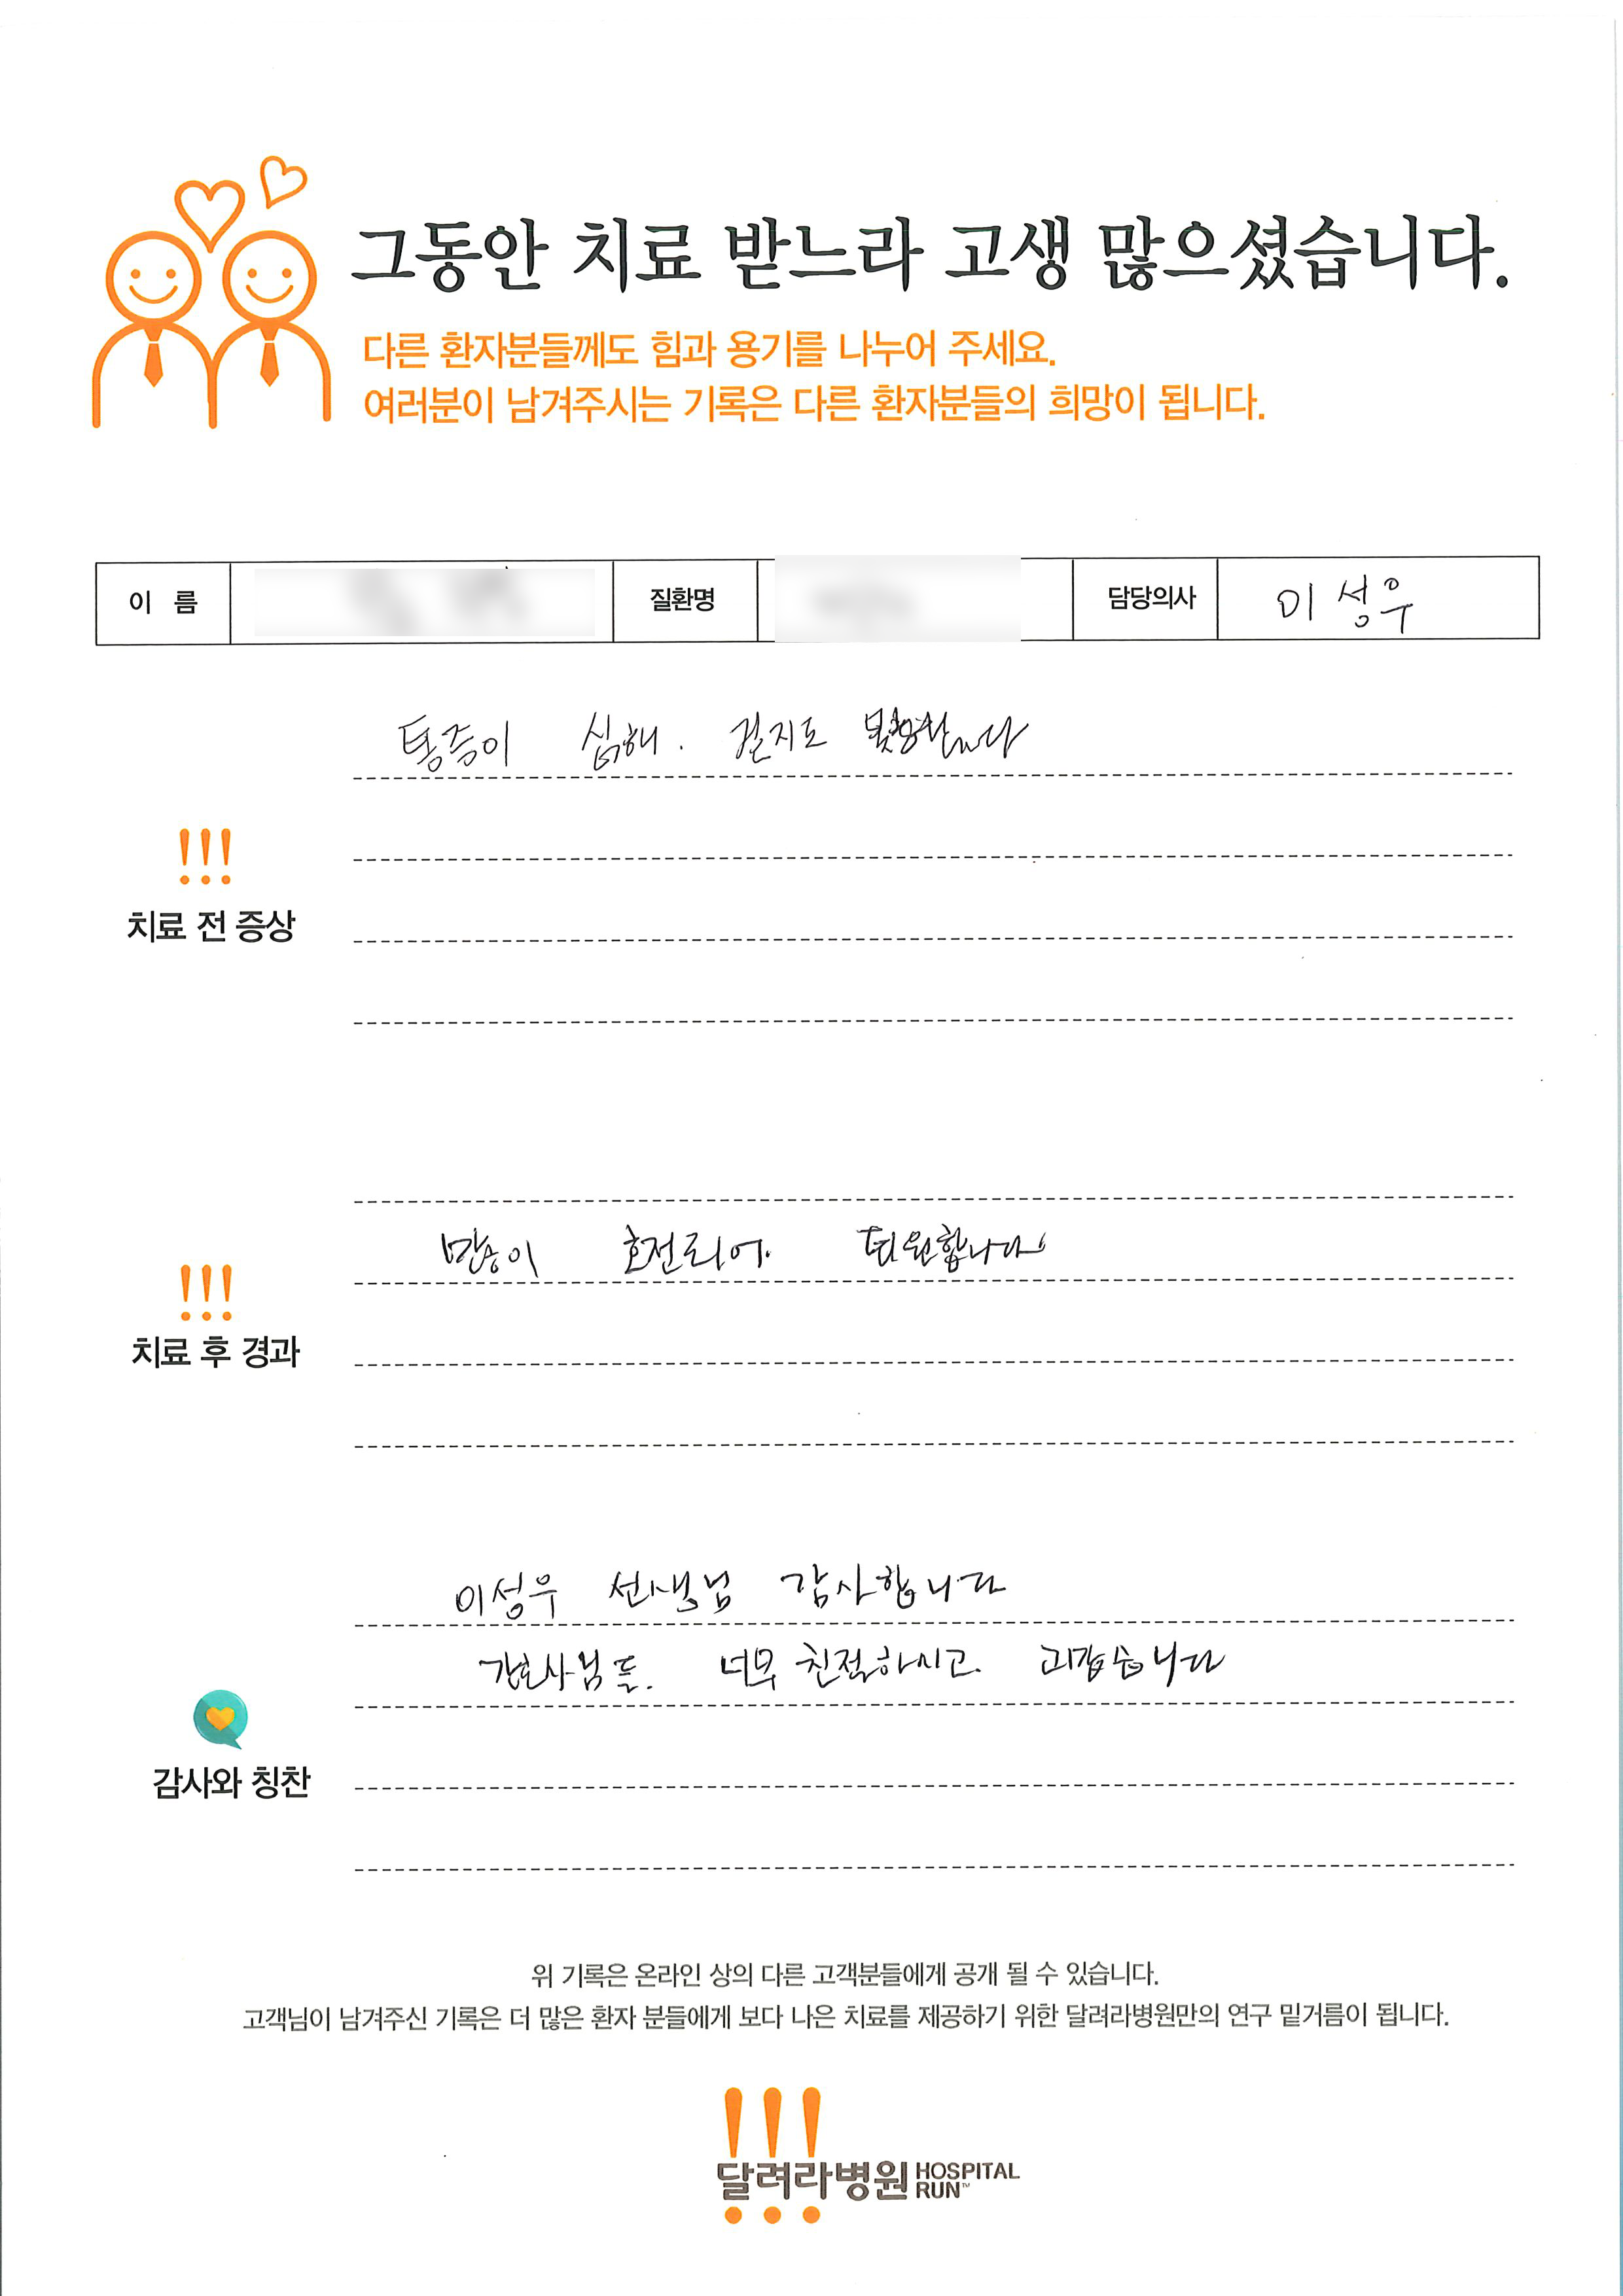 그동안 치료 받느라 고생 많으셨습니다.
다른 환자분들께도 힘과 용기를 나누어 주세요.
여러분이 남겨주시는 기록은 다른 환자분들의 희망이 됩니다.
이 름 질환명 담당의사 이성우
통증이 심해. 걸지도
!!!
치료 전 증상
많이 호전되어. 퇴원합니다
!!!
치료 후 경과
이성우 선생님 감사합니다
간호사님들. 너무 친절하시고. 고맙습니다
감사와 칭찬
위 기록은 온라인 상의 다른 고객분들에게 공개 될 수 있습니다.
고객님이 남겨주신 기록은 더 많은 환자 분들에게 보다 나은 치료를 제공하기 위한 달려라병원만의 연구 밑거름이 됩니다.
달려라병원 HOSPITAL RUN™